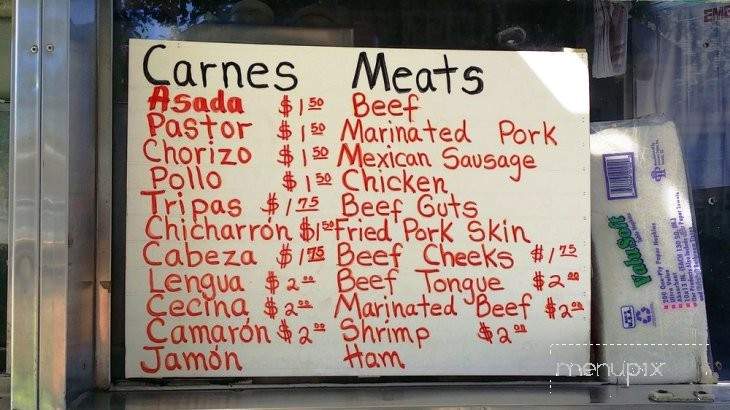 Carnes Meats
Asada $1 50 Beef
Pastor $1 50 Marinated Pork
Chorizo $1 50 Mexican Sausage
Pollo $1 50 Chicken
Tripas $1 75 Beef Guts
Chicharrón $1 50 Fried Pork Skin
Cabeza $1 75 Beef Cheeks $1 75
Lengua $2 00 Beef Tongue $2 00
Cecina $2 00 Marinated Beef $2 00
Camarón $2 00 Shrimp $2 00
Jamón Ham
ValuSoft
menupix